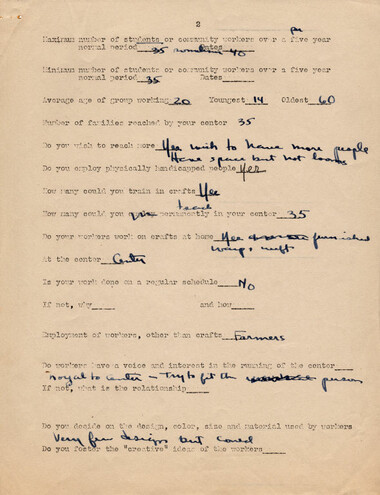 2
Maximum number of students or community workers over a five year
normal period 35 sometimes 40 Dates
Minimum number of students or community workers over a five year
normal period 35 Dates
Average age of group working 20 Youngest 14 Oldest 60
Number of families reached by your center 35
Do you wish to reach more Yes wish to have more people
Have space but not looms
Do you employ physically handicapped people Yes
How many could you train in crafts Yes
teach
How many could you permanently in your center 35
Do your workers work on crafts at home Yes furnished
warp,
At the center Center
Is your work done on a regular schedule No
If not, why and how
Employment of workers, other than crafts Farmers
Do workers have a voice and interest in the running of the center
loyal to center - Try to fit the person
If not, what is the relationship
Do you decide on the design, color, size and material used by workers
Very few designs but could
Do you foster the "creative" ideas of the workers